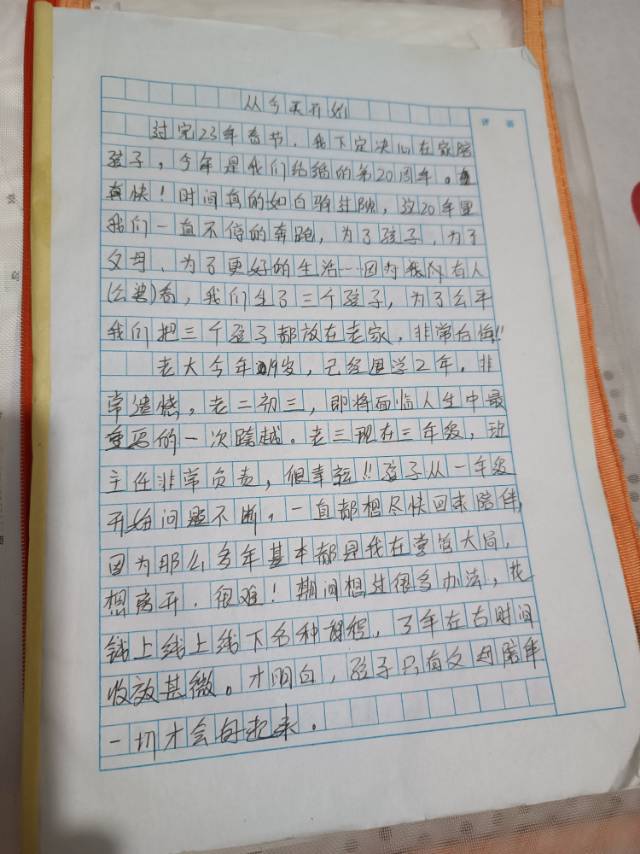 从今天开始
过完23年春节,我下定决心在家陪
孩子,今年是我们结婚的第20周年。
真快!时间真的如白驹过隙,这20年里
我们一直不停的奔跑,为了孩子,为了
父母,为了更好的生活…因为我们有人
(公婆)看,我们生了三个孩子,为了公平
我们把三个孩子都放在老家,非常后悔!!
老大今年19岁,已经退学2年。非
常遗憾。老二初三,即将面临人生中最
重要的一次跨越。老三现在三年级,班
主任非常负责,很幸运!!孩子从一年级
开始问题不断,一直都想尽快回来陪伴,
因为那么多年基本都是我在掌管大局,
想离开,很难!期间想过很多办法,花
钱上线上线下各种课程,3年左右时间
收效甚微。才明白,孩子只有父母陪伴
一切才会好起来。